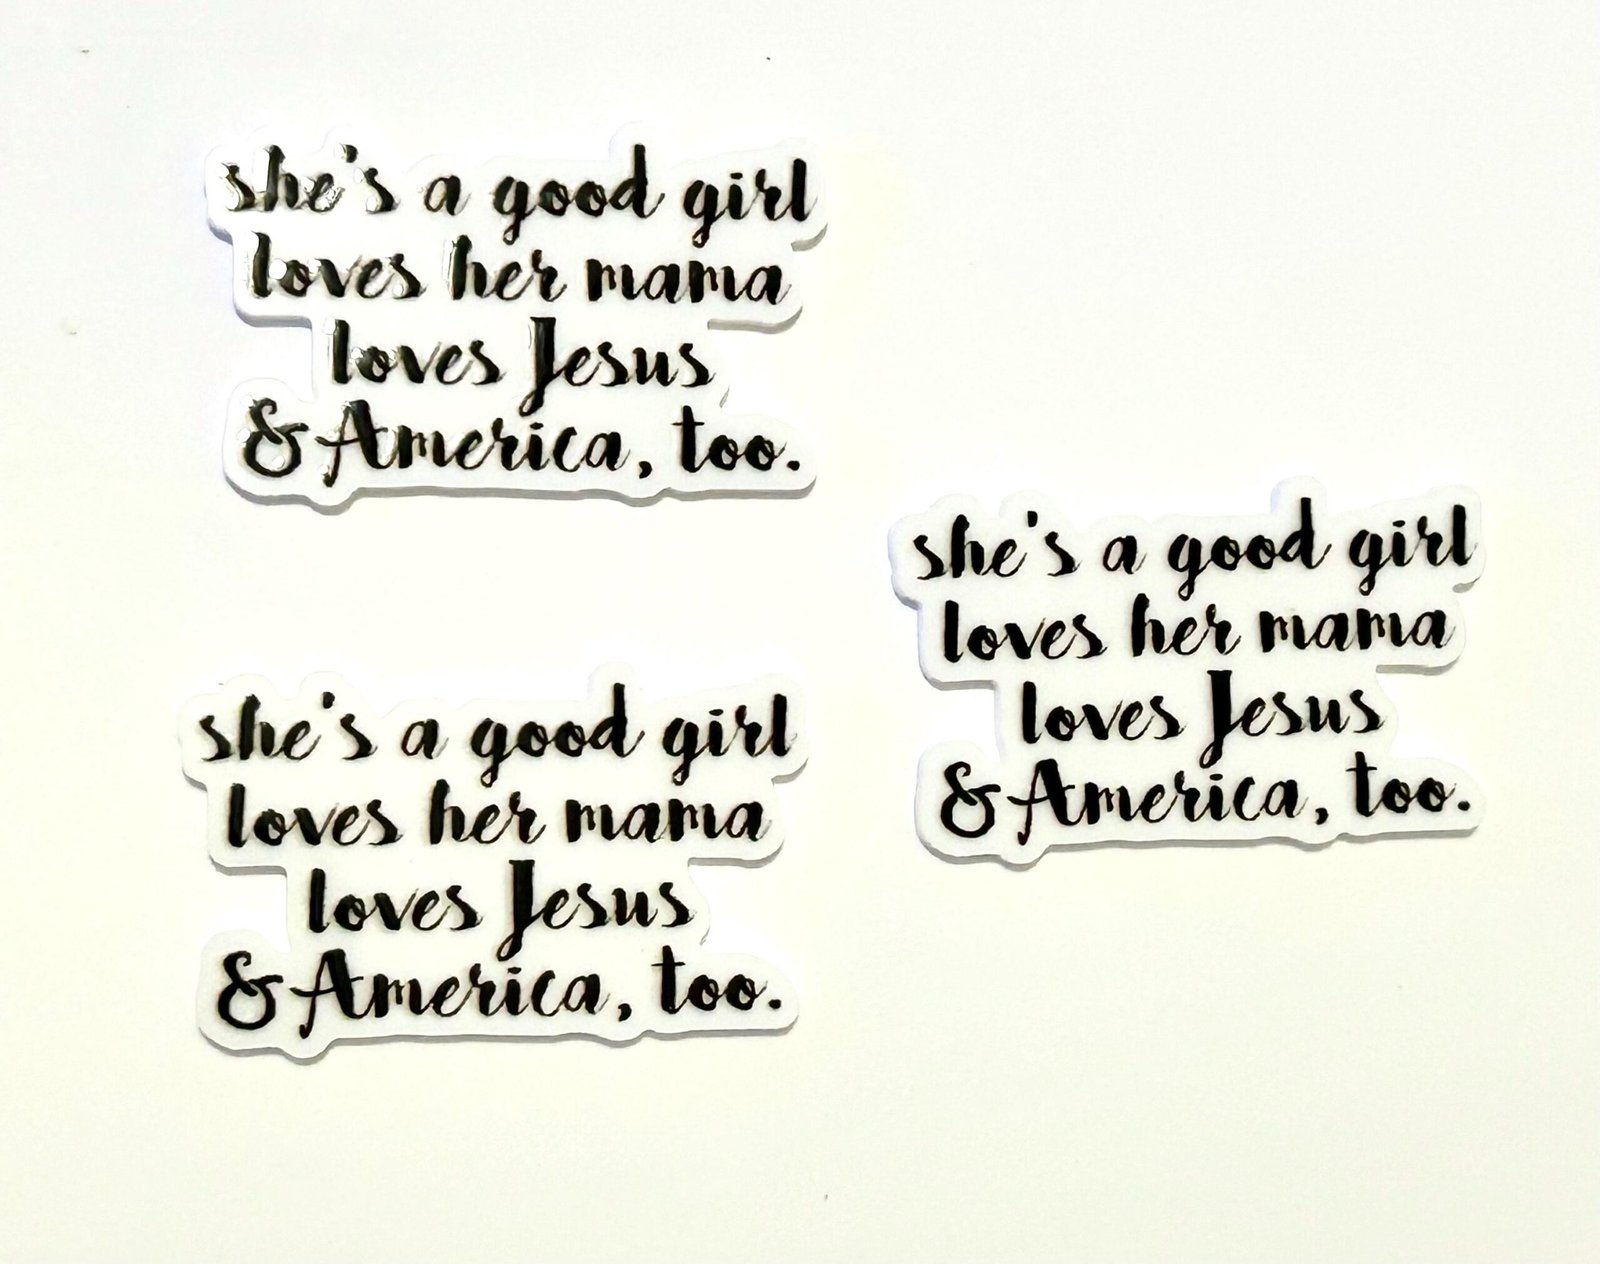 she's a good girl
loves her mama
loves Jesus
& America, too.
she's a good girl
loves her mama
loves Jesus
& America, too.
she's a good girl
loves her mama
loves Jesus
& America, too.